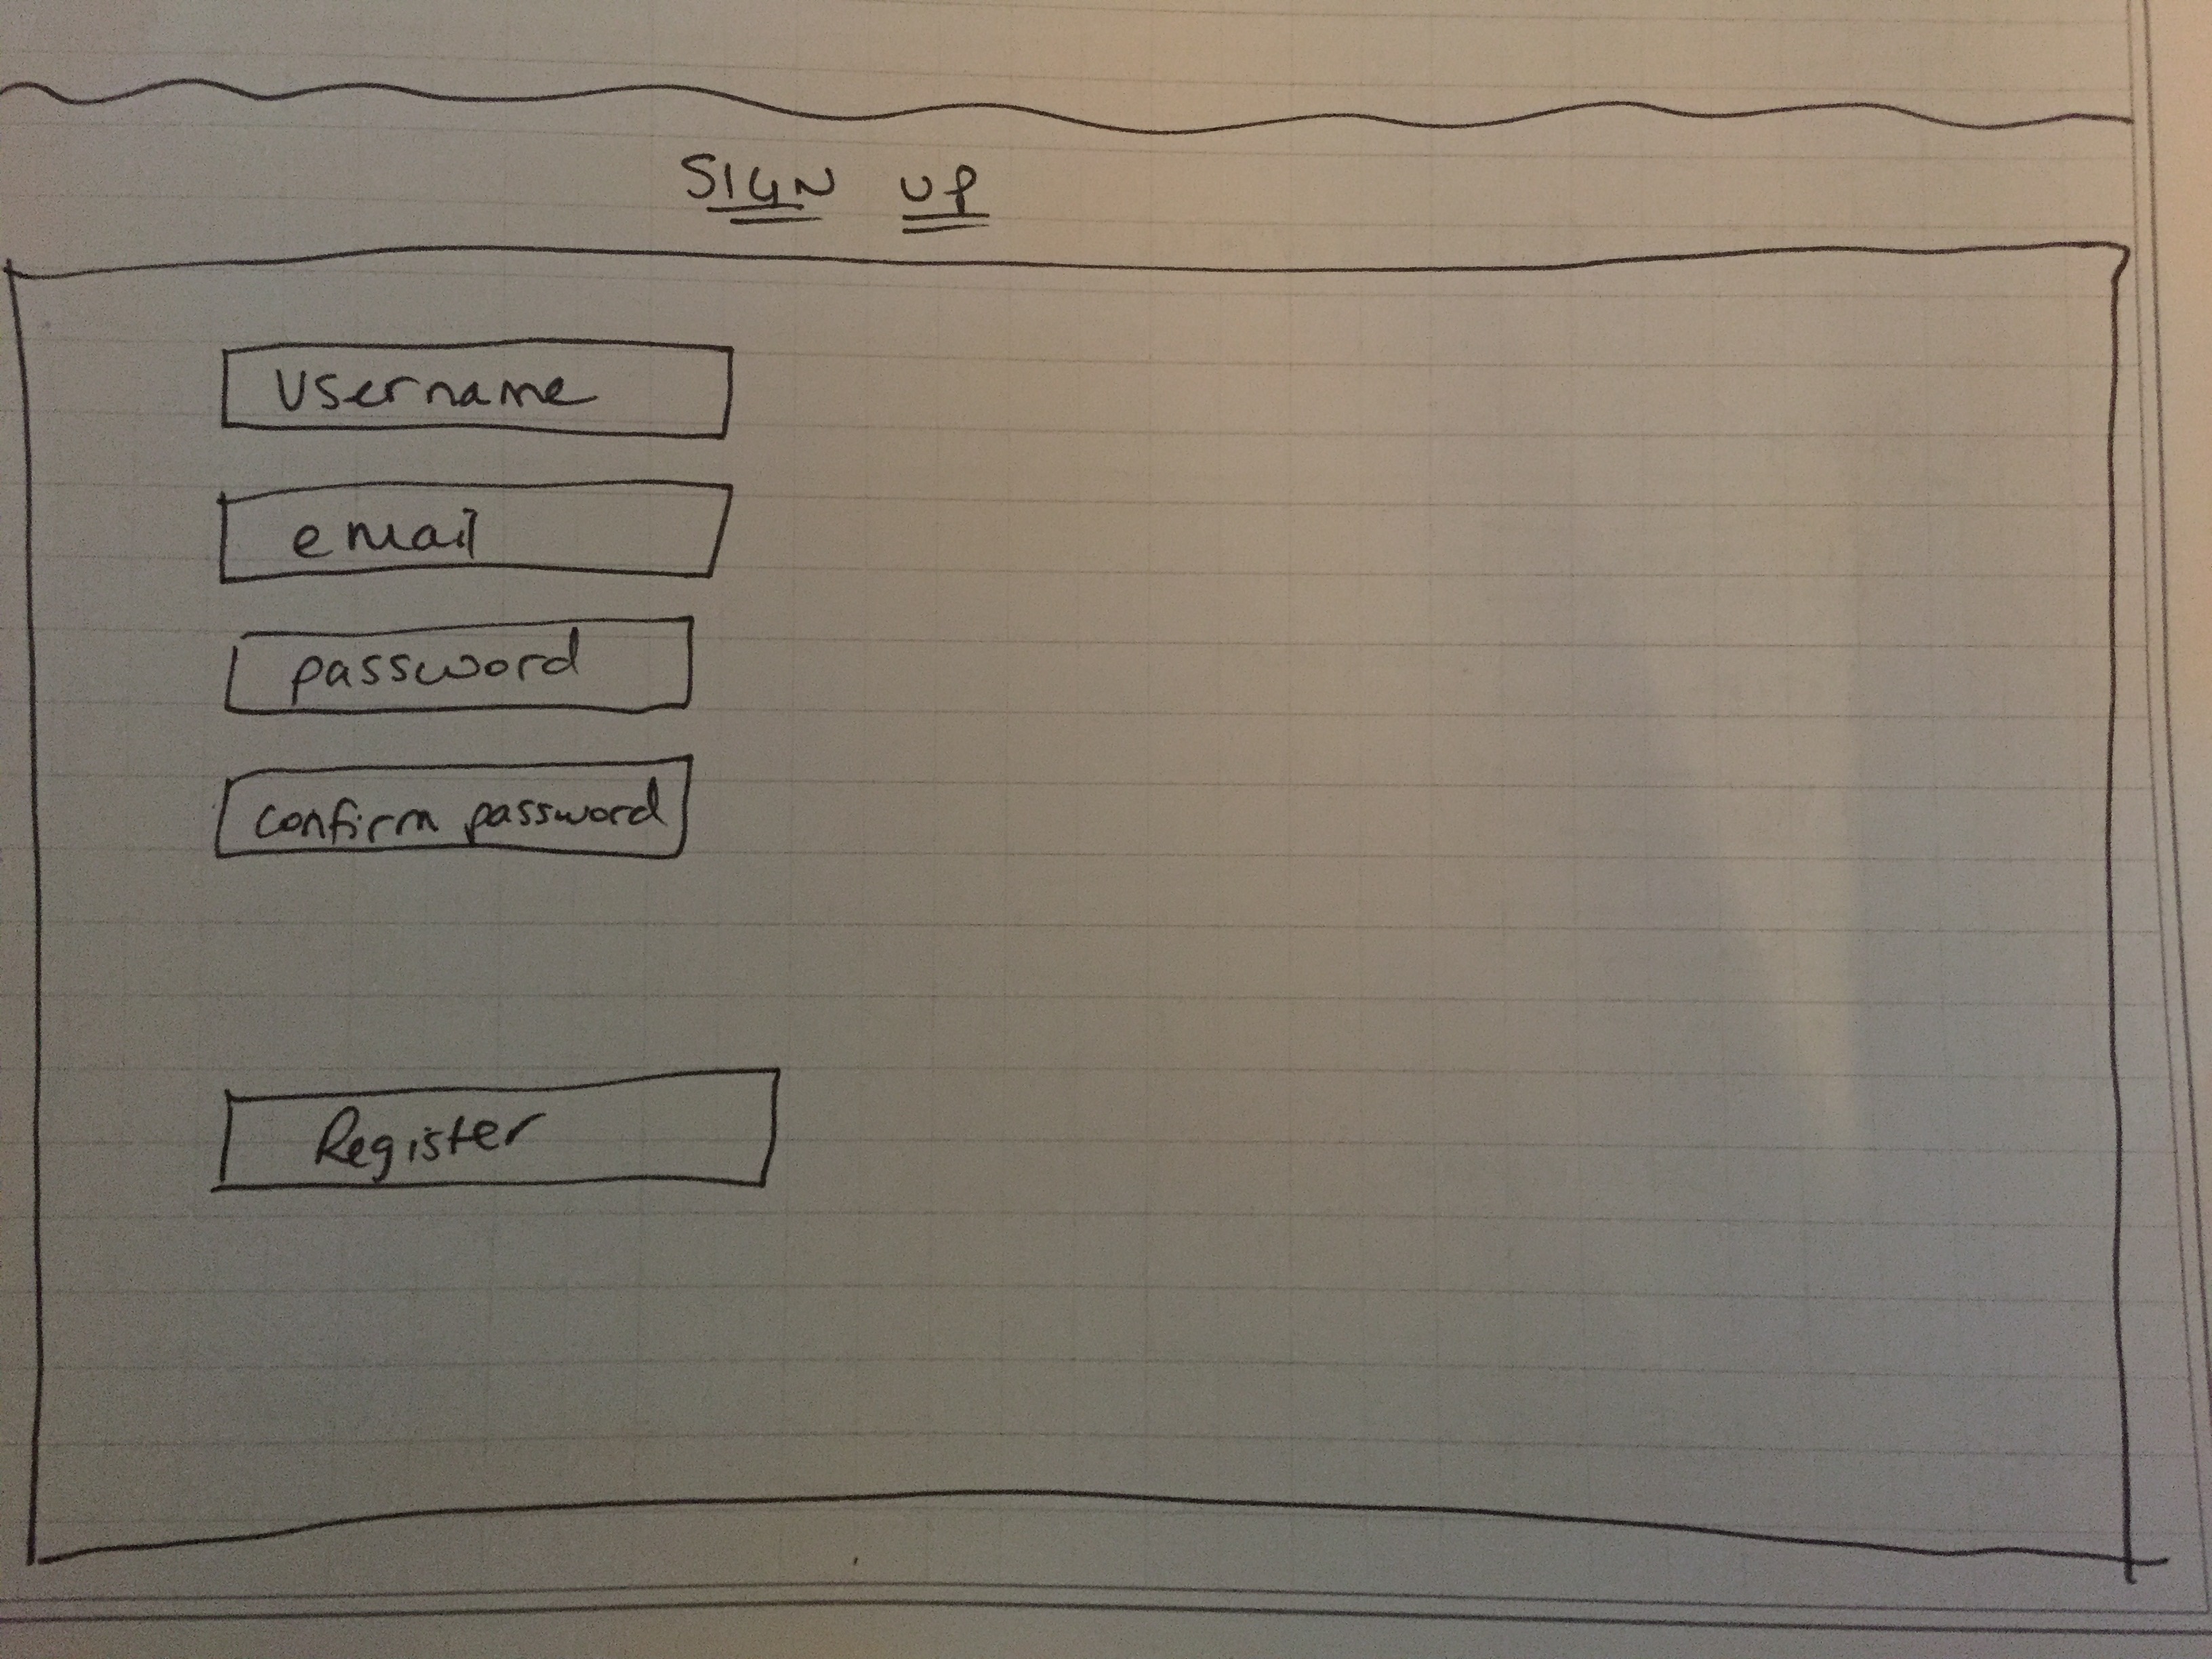 SIGN UP
Username
email
password
confirm password
Register